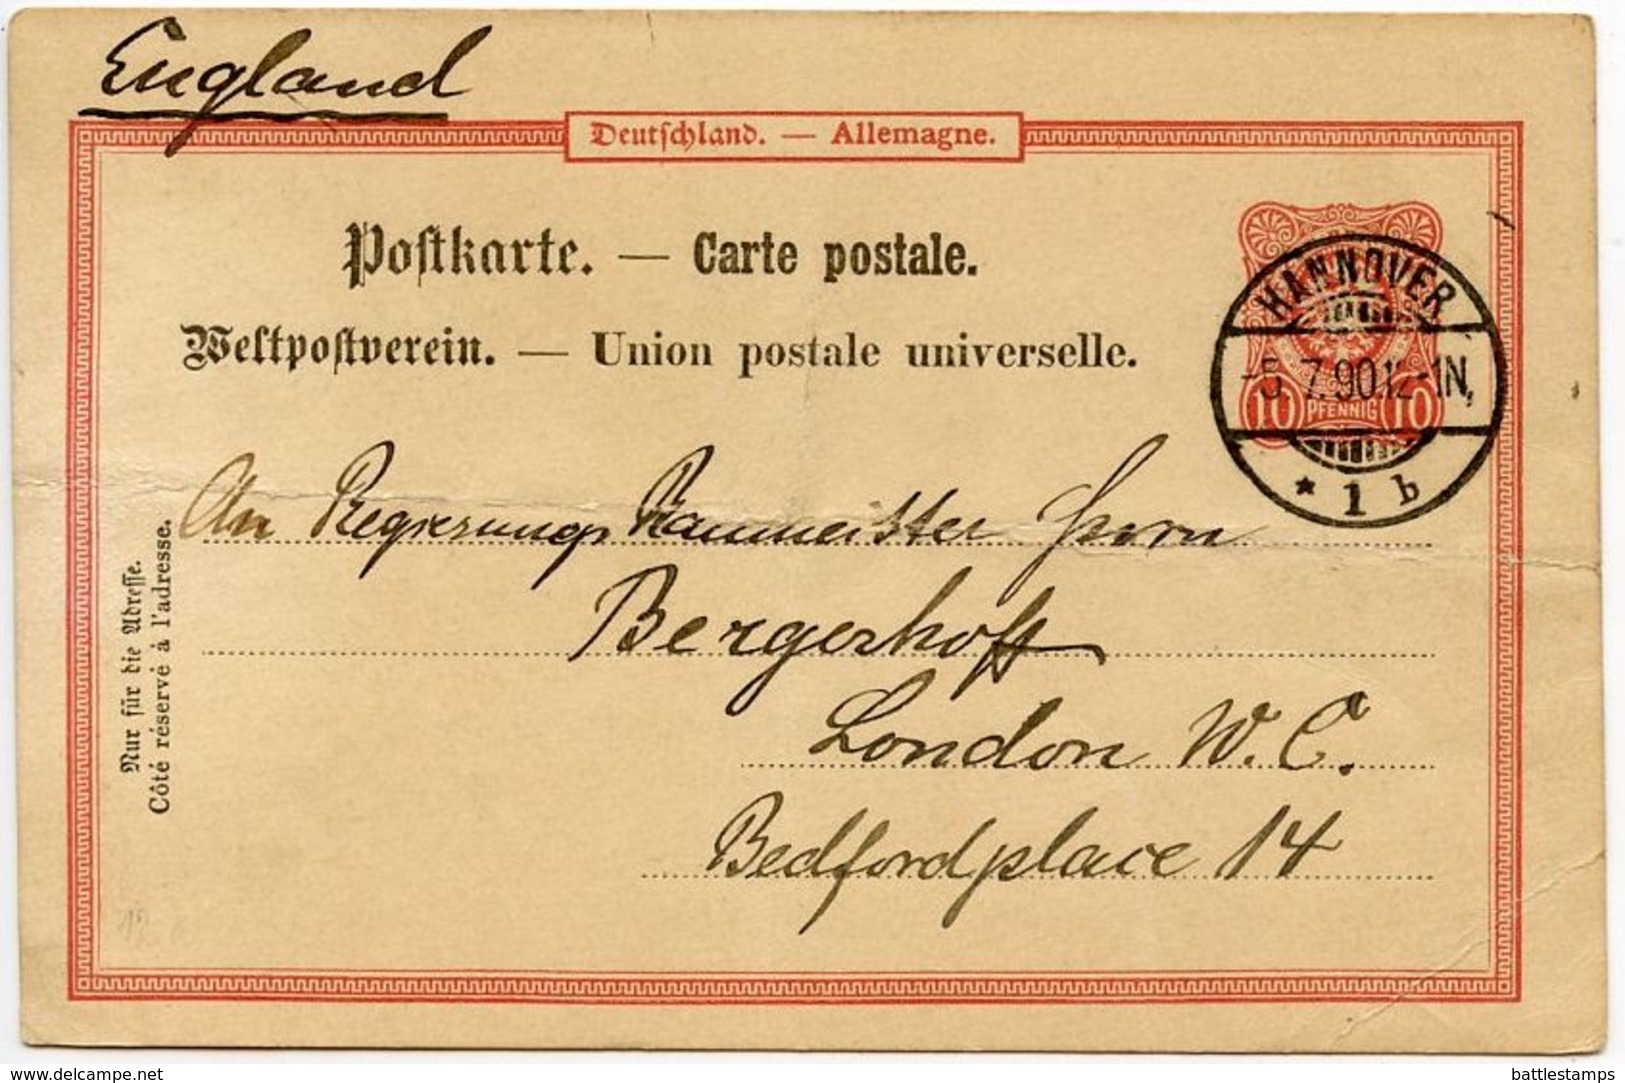 England
Deutschland. — Allemagne.
Postkarte. — Carte postale.
Weltpostverein. — Union postale universelle.
HANNOVER
-5.7.90.12-1N,
* 1 b
10 PFENNIG 10
An Regierungs Baumeister Herrn
Bergerhoff
London W. C.
Bedfordplace 14
Nur für die Adresse.
Côté réservé à l'adresse.
delcampe.net
battlestamps